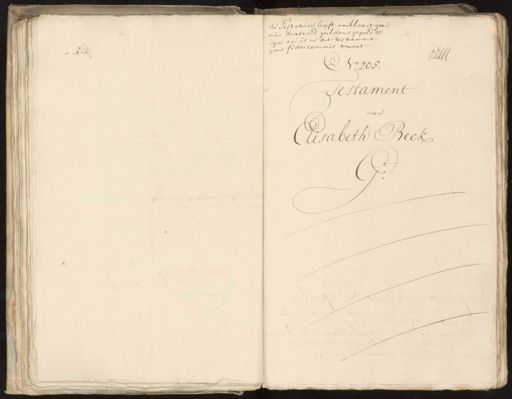 de Testatrice heeft verklaart geen
vier duizend guldens gegoed te
zijn en is in dit testament
geen fideicommis vervat
No 205.
Testament
van
Elisabeth Beck